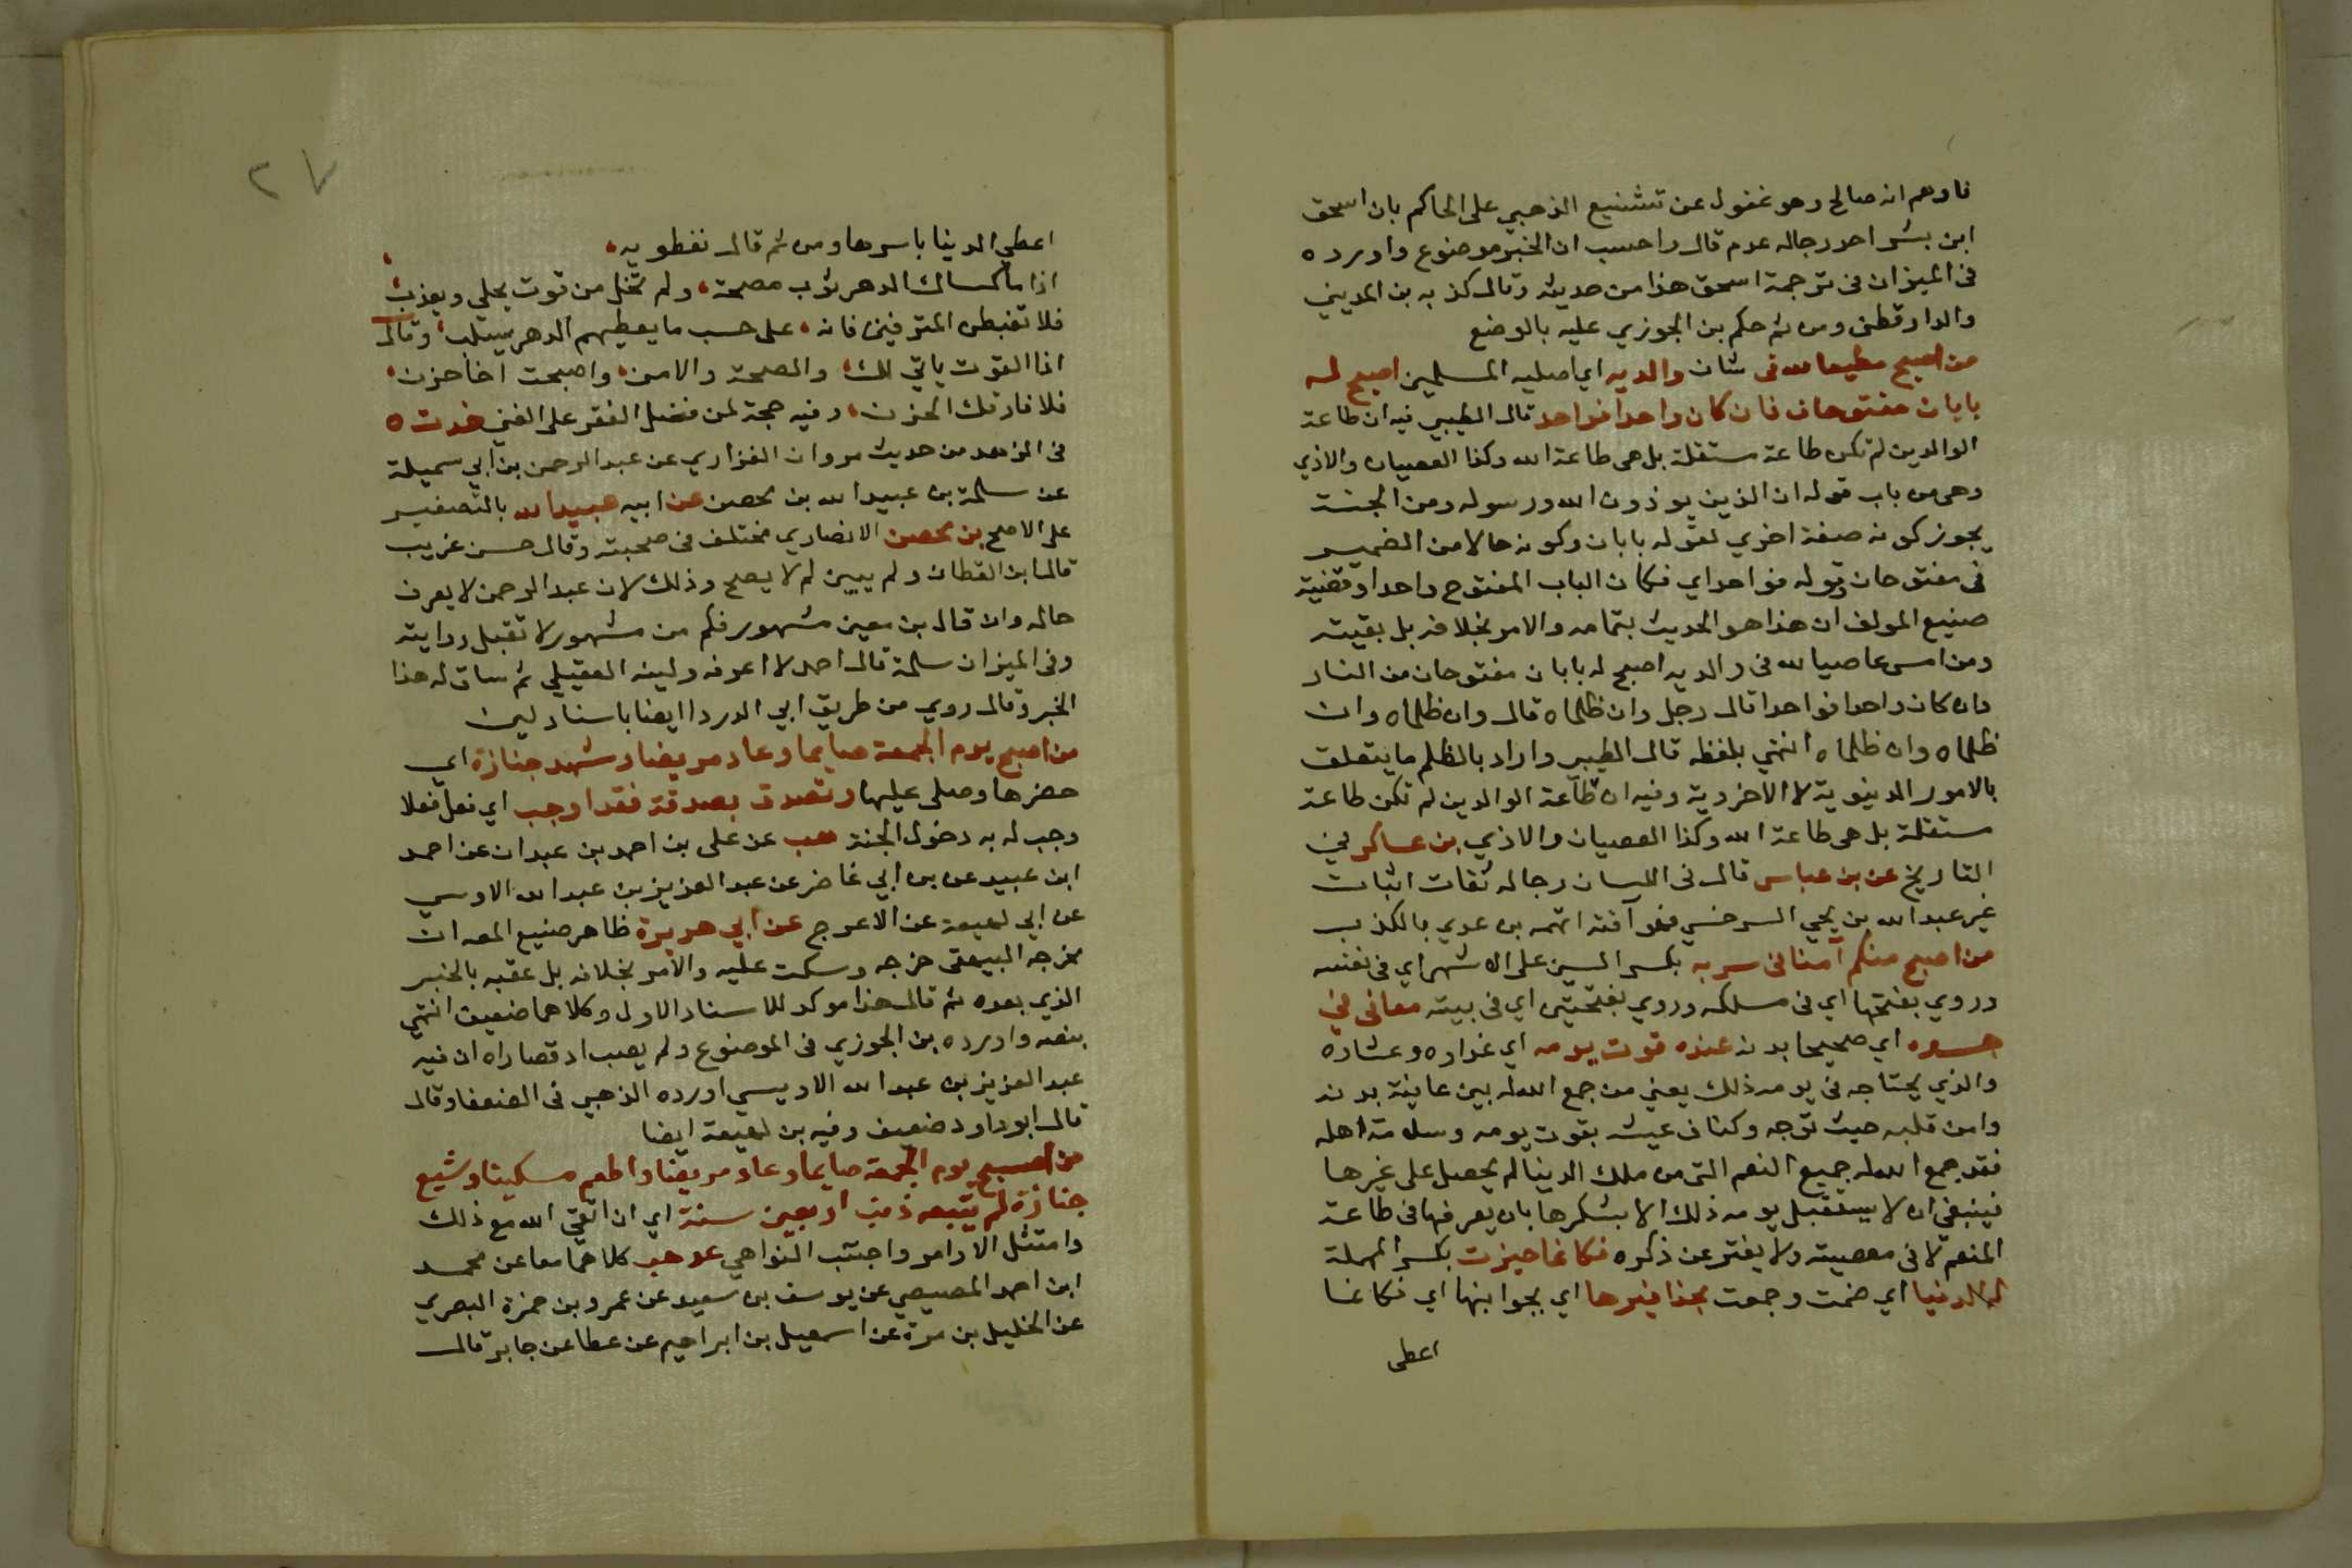 فاوهم انه صالح وهو غفول عن تشنيع الذهبي على الحاكم بان اسحق
ابن بشر احد رجاله عدم قال واحسب ان الخبر موضوع واورده
في الميزان في ترجمة اسحق هذا من حديثه وقال كذبه بن المديني
والدارقطني ومن ثم حكم بن الجوزي عليه بالوضع
من اصبح مطيعا لله في شان والديه اي اصليه المسلمين اصبح له
بابان مفتوحان فان كان واحدا فواحد قال الطيبي فيه ان طاعة
الوالدين لم تكن طاعة مستقلة بل هي طاعة الله وكذا العصيان والاذي
وهي من باب قوله ان الذين يوذون الله ورسوله ومن الجنة
يجوز كونه صفة اخري لقوله بابان وكونه حالا من الضمير
في مفتوحان وقوله فواحد اي فكان الباب المفتوح واحدا وقضية
صنيع المولف ان هذا هو الحديث بتمامه والامر بخلافه بل بقيته
ومن امسى عاصيا لله في والديه اصبح له بابان مفتوحان من النار
وان كان واحدا فواحدا قال رجل وان ظلماه قال وان ظلماه وان
ظلماه وان ظلماه انتهي بلفظه قال الطيبي واراد بالظلم ما يتعلق
بالامور الدنيوية لا الاخروية وفيه ان طاعة الوالدين لم تكن طاعة
مستقلة بل هي طاعة الله وكذا العصيان والاذي بن عساكر في
التاريخ عن بن عباس قال في اللسان رجاله ثقات اثبات
غير عبد الله بن يحيي السرخسي فهو آفته اتهمه بن عدي بالكذب
من اصبح منكم آمنا في سربه بكسر السين على الاشهر اي في نفسه
وروي بفتحها اي في مسلكه وروي بفتحتين اي في بيته معافي في
جسده اي صحيحا بدنه عنده قوت يومه اي غداوه وعشاوه
والذي يحتاجه في يومه ذلك يعني من جمع الله له بين عافية بدنه
وامن قلبه حيث توجه وكفاف عيشه بقوت يومه وسلامة اهله
فقد جمع الله له جميع النعم التي من ملك الدنيا لم يحصل على غيرها
فينبغي ان لا يستقبل يومه ذلك الا بشكرها بان يصرفها في طاعة
المنعم لا في معصيته ولا يفتر عن ذكره فكانما حيزت بكسر المهملة
له الدنيا اي ضمت وجمعت بحذافيرها اي بجوانبها اي فكانما
اعطى
٢٧
اعطي الدنيا باسرها ومن ثم قال نفطويه
اذا ما كساك الدهر ثوب مصحة ولم تخل من قوت يحلي ويعذب
فلا تغبطن المترفين فانه على حسب ما يعطيهم الدهر يسلب وقال
اذا القوت ياتي لك والصحة والامن واصبحت اخا حزن
فلا فارقك الحزن وفيه حجة لمن فضل الفقر على الغني خد ت ه
في الزهد من حديث مروان الفزاري عن عبد الرحمن بن ابي سميلة
عن سلمة بن عبيد الله بن محصن عن ابيه عبيد الله بالتصغير
على الاصح بن محصن الانصاري مختلف في صحبته وقال حسن غريب
قال ابن القطان ولم يبين لم لا يصح وذلك لان عبد الرحمن لا يعرف
حاله وان قال بن معين مشهور فكم من مشهور لا تقبل روايته
وفي الميزان سلمة قال احمد لا اعرفه ولينه العقيلي ثم ساق له هذا
الخبر وقال روي من طريق ابي الدردا ايضا باسناد لين
من اصبح يوم الجمعة صايما وعاد مريضا وشهد جنازة اي
حضرها وصلى عليها وتصدق بصدقة فقد اوجب اي فعل فعلا
وجب له به دخول الجنة هب عن على بن احمد بن عبدان عن احمد
ابن عبيد عن بن ابي غاضر عن عبد العزيز بن عبد الله الاوسي
عن ابي لهيعة عن الاعرج عن ابي هريرة ظاهر صنيع المص ان
مخرجه البيهقى خرجه وسكت عليه والامر بخلافه بل عقبه بالخبر
الذي بعده ثم قال هذا موكد للاسناد الاول وكلاهما ضعيف انتهي
بنصه واورده بن الجوزي في الموضوع ولم يصب اذ قصاراه ان فيه
عبد العزيز بن عبد الله الاويسي اورده الذهبي في الضعفا وقال
قال ابو داود ضعيف وفيه بن لهيعة ايضا
من اصبح يوم الجمعة صايما وعاد مريضا واطعم مسكينا وشيع
جنازة لم يتبعه ذنب اربعين سنة اي ان اتقي الله مع ذلك
وامتثل الاوامر واجتنب النواهي عد هب كلاهما معا عن محمد
ابن احمد المصيصي عن يوسف بن سعيد عن عمرو بن حمزة البصري
عن الخليل بن مرة عن اسمعيل بن ابراهيم عن عطا عن جابر قال